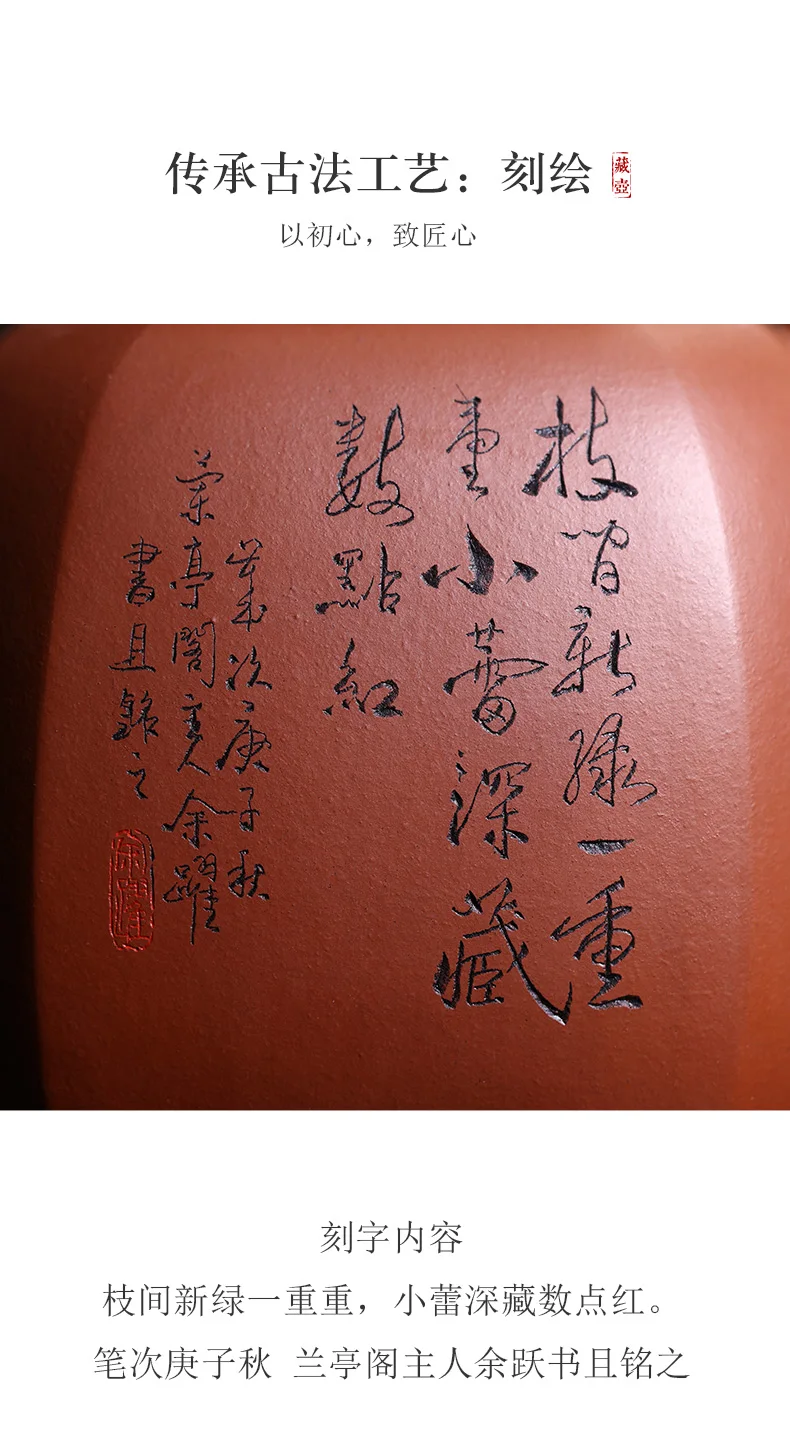 传承古法工艺：刻绘
藏壶
以初心，致匠心
枝間新绿一重
重小蕾深藏
數點紅
歲次庚子秋
蘭亭閣主人余躍
書且銘之
余躍
刻字内容
枝间新绿一重重，小蕾深藏数点红。
笔次庚子秋 兰亭阁主人余跃书且铭之